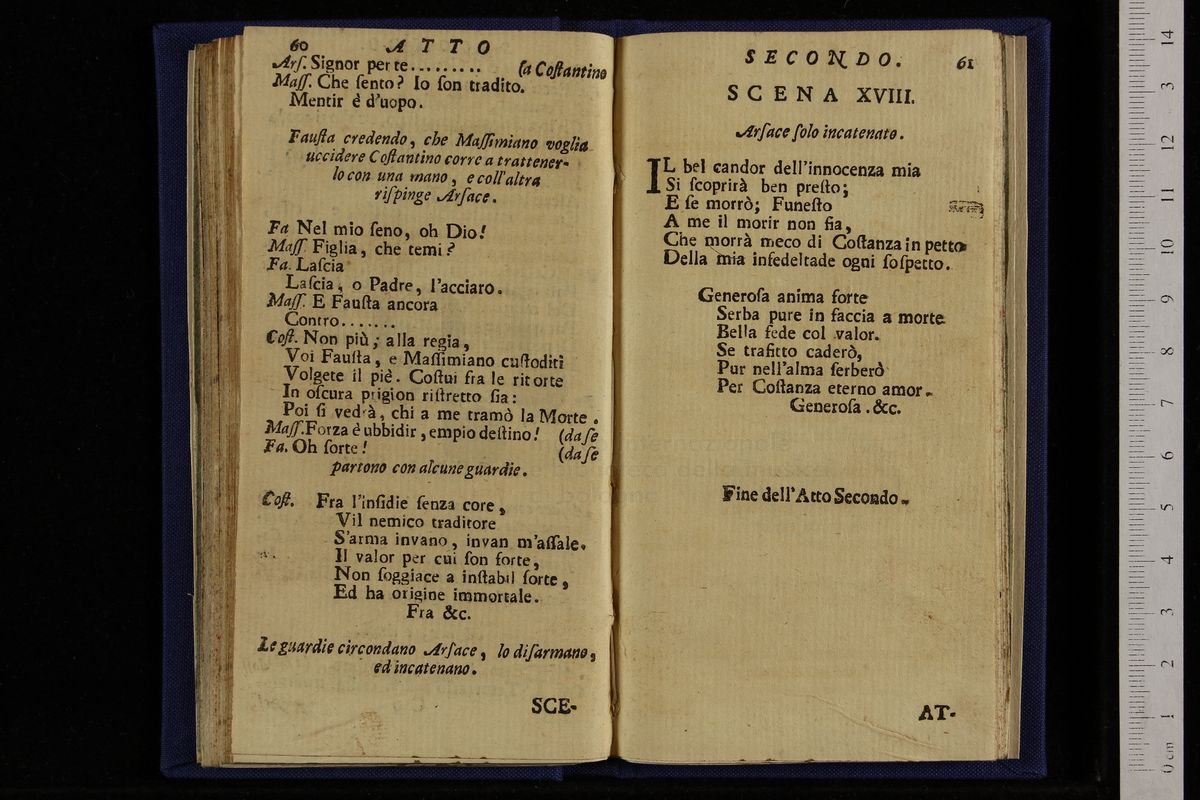 60 ATTO
Arſ. Signor per te......... (a Coſtantino
Maſſ. Che ſento? Io ſon tradito.
Mentir è d'uopo.
Fauſta credendo, che Maſſimiano voglia
uccidere Coſtantino corre a trattener-
lo con una mano, e coll'altra
riſpinge Arſace.
Fa Nel mio ſeno, oh Dio!
Maſſ. Figlia, che temi?
Fa. Laſcia
Laſcia, o Padre, l'acciaro.
Maſſ. E Fauſta ancora
Contro.......
Coſt. Non più; alla regia,
Voi Fauſta, e Maſſimiano cuſtoditi
Volgete il piè. Coſtui fra le ritorte
In oſcura prigion riſtretto ſia:
Poi ſi vedrà, chi a me tramò la Morte.
Maſſ. Forza è ubbidir, empio deſtino! (da ſe
Fa. Oh ſorte! (da ſe
partono con alcune guardie.
Coſt. Fra l'inſidie ſenza core,
Vil nemico traditore
S'arma invano, invan m'aſſale.
Il valor per cui ſon forte,
Non ſoggiace a inſtabil ſorte,
Ed ha origine immortale.
Fra &c.
Le guardie circondano Arſace, lo diſarmano,
ed incatenano.
SCE-
SECONDO. 61
SCENA XVIII.
Arſace ſolo incatenato.
IL bel candor dell'innocenza mia
Si ſcoprirà ben preſto;
E ſe morrò; Funeſto
A me il morir non fia,
Che morrà meco di Coſtanza in petto
Della mia infedeltade ogni ſoſpetto.
Generoſa anima forte
Serba pure in faccia a morte
Bella fede col valor.
Se trafitto caderò,
Pur nell'alma ſerberò
Per Coſtanza eterno amor.
Generoſa. &c.
Fine dell'Atto Secondo.
AT-
14
3
12
11
10
9
8
7
6
5
4
3
2
1
0 cm